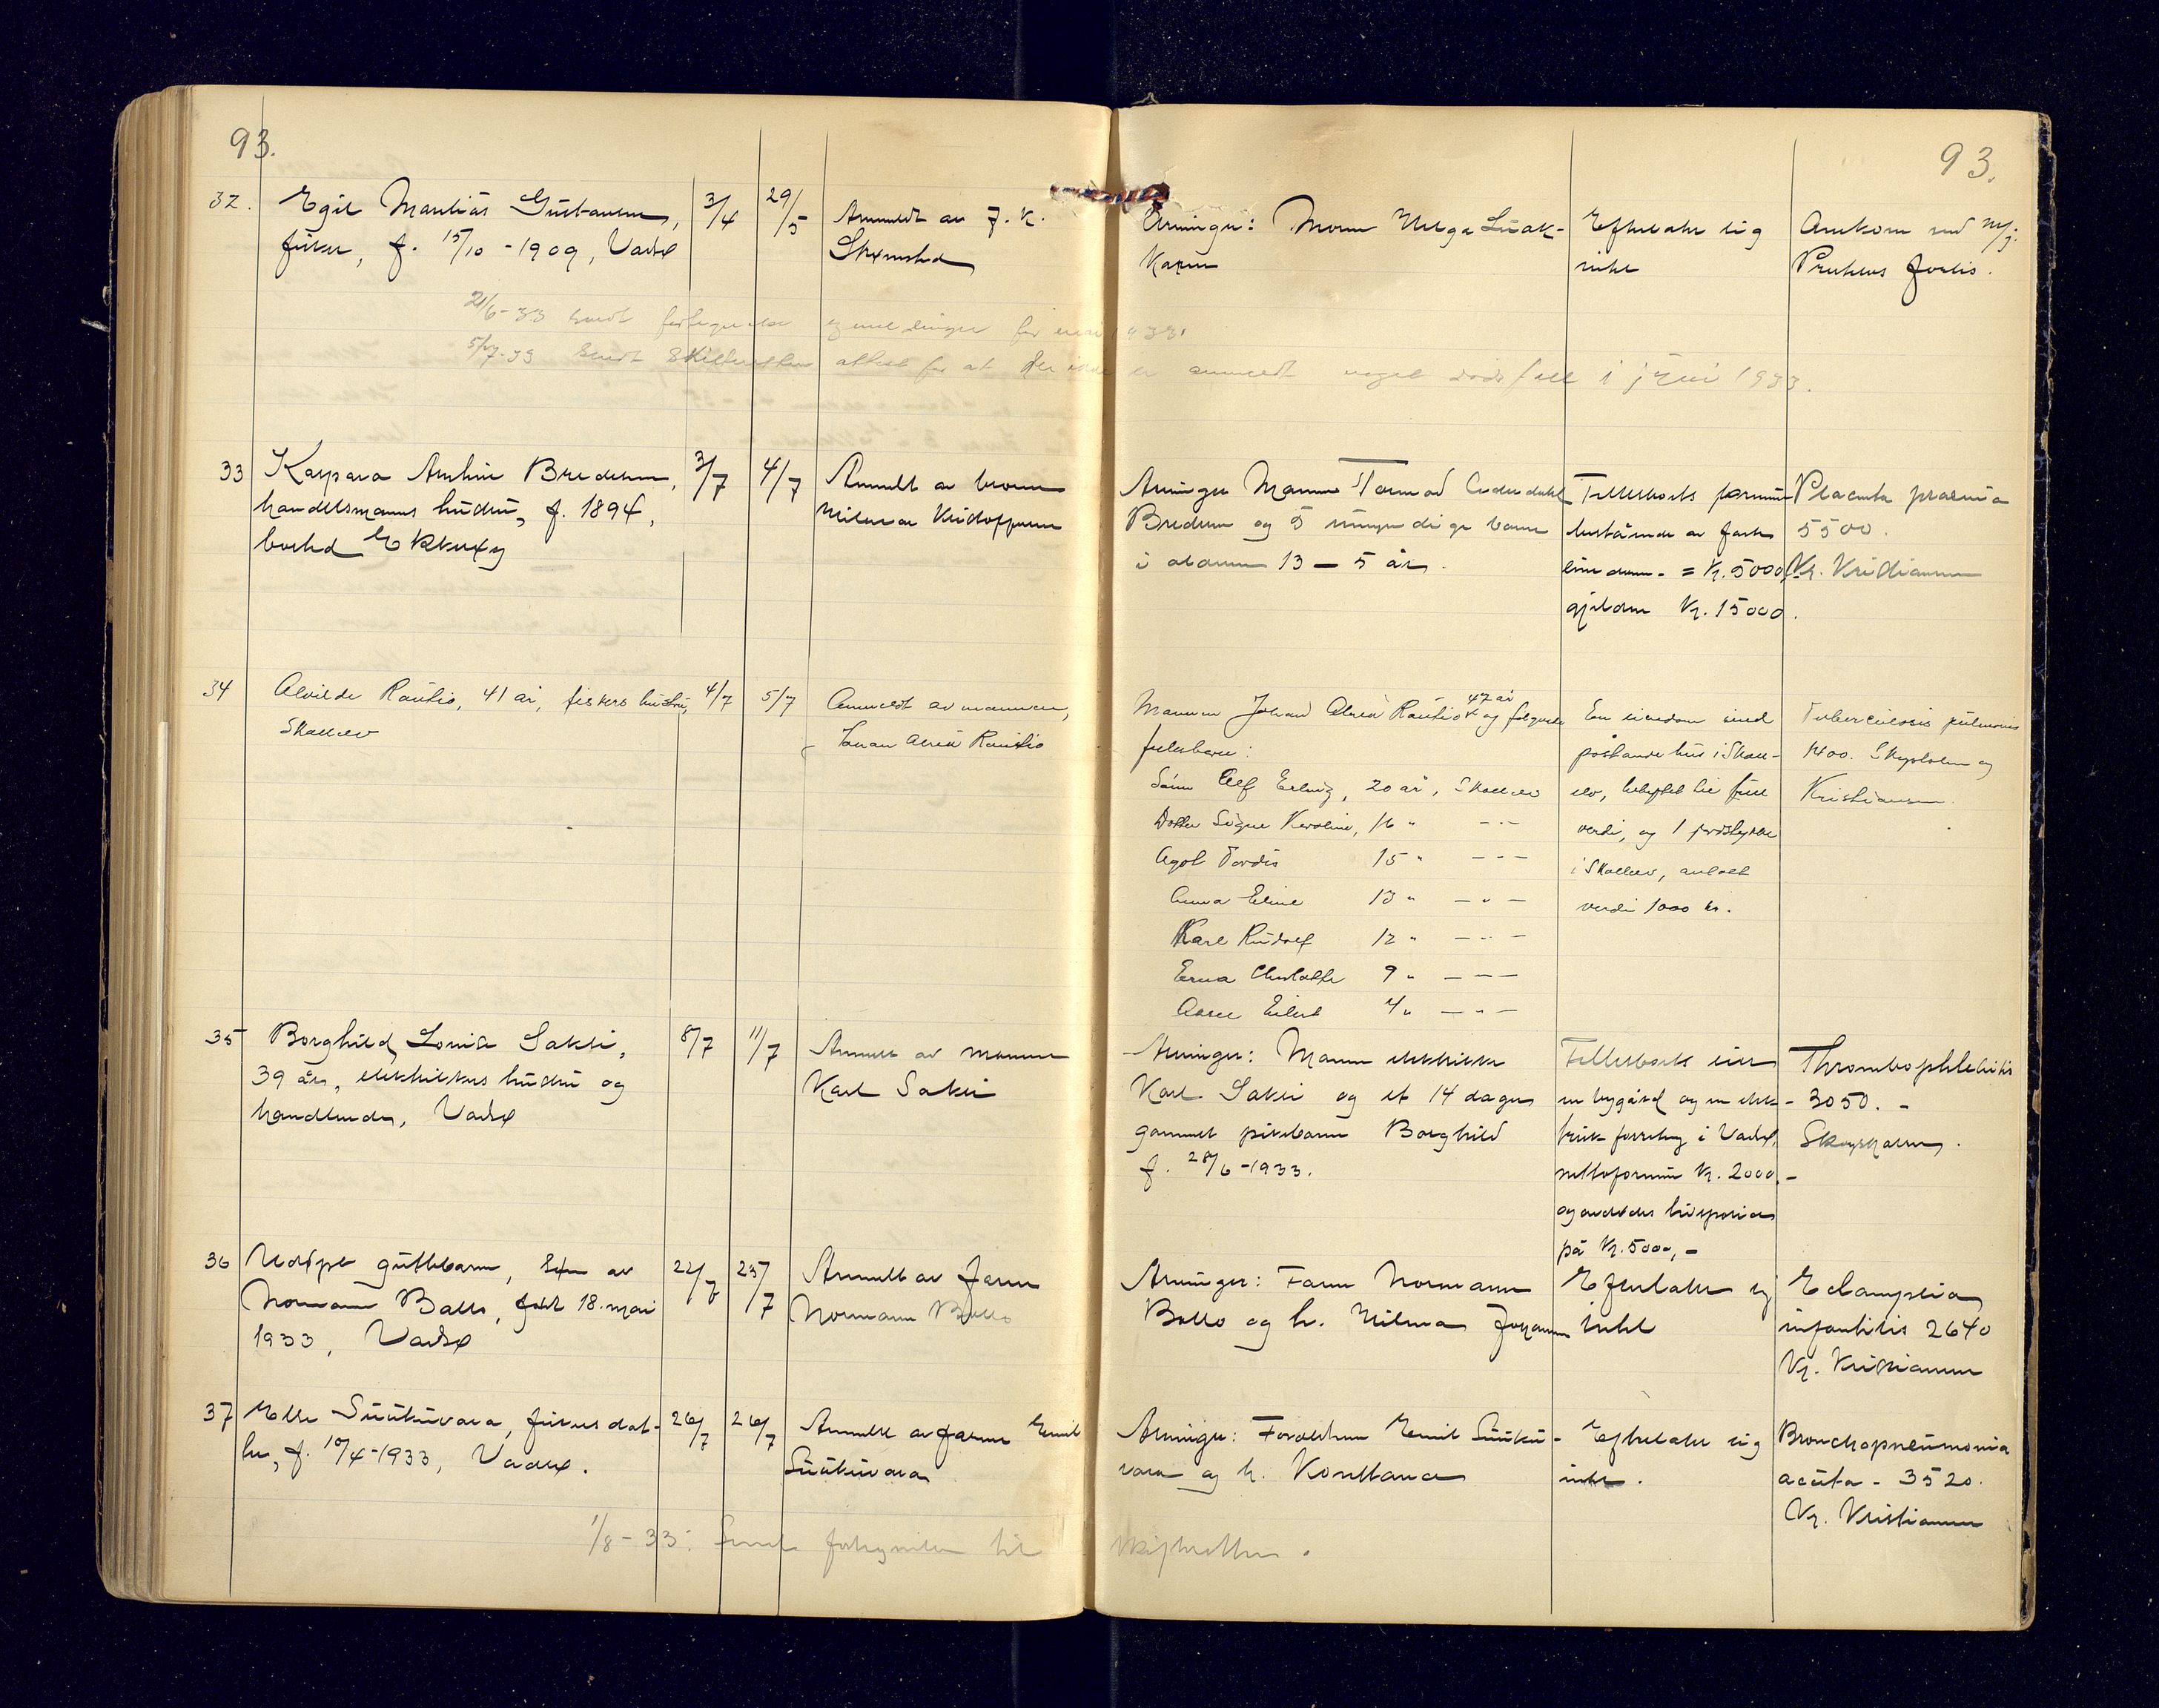 93.
93.
32.
Egil Mantias Gustavsen,
fisker, f. 15/10 - 1909, Vadsø
3/4
29/5
Anmeldt av J. K.
Arvinger: Moren Helga
Efterlater sig
intet
Omkom med M/J.
Protheus forlis.
21/6-33 sendt fortegnelse
5/7.33 Sendt Skifteretten attest for at der ikke er anmeldt noget dødsfall i juni 1933.
33
Kaspara Bredesen,
handelsmanns hustru, f. 1894,
bosted Ekkerøy
3/7
4/7
Anmeldt av broren
Hilmar Kristoffersen
Arvinger Mannen Tormod
Bredesen og 5 umyndige barn
i alderen 13 - 5 år.
Fellesboets formue
bestående av faste
eiendom. = Kr. 5000,-
gjelden Kr. 15000.
Placenta prævia
5500.
Kr. Kristiansen
34
Alvilde Rautio, 41 år, fiskers hustru,
Skallelv
4/7
5/7
Anmeldt av mannen,
Johan Alfred Rautio
Mannen Johan Alfred Rautio 47 år og følgende
fellesbarn:
Sønn Alf Erling, 20 år, Skallelv
Datter Signe Karoline, 16 " - " -
Agot Tordis 15 " - " -
Anna Eline 13 " - " -
Karl Rudolf 12 " - " -
Erna Charlotte 9 " - " -
Eilert 4 " - " -
En eiendom med
påstående hus i Skall-
elv, beheftet til full
verdi, og 1 jordstykke
i Skallelv, antatt
verdi 1000 kr.
Tuberculosis pulmonis
1400. Skogsholm og
Kristiansen.
35
Borghild Lovise Sakse,
39 år, elektrikers hustru og
handlende, Vadsø
8/7
11/7
Anmeldt av mannen
Karl Sakse
Arvinger: Mannen elektriker
Karl Sakse og et 14 dager
gammelt pikebarn Borghild
f. 28/6-1933.
Fellesboets eier
en bygård og en elek-
trisk forretng i Vadsø,
nettoformue Kr. 2000.-
og avdødes livspolice
på Kr. 5000,-
Thrombophlebitis
3050. -
Skogsholm.
36
Udøpt guttebarn, søn av
Normann Ballo, født 18. mai
1933, Vadsø
22/7
25/7
Anmeldt av faren
Normann Ballo
Arvinger: Faren Normann
Ballo og h. Hilma Johanne
Efterlater sig
intet
Eclampsia
infantilis 2640
Kr. Kristiansen
37
Elle Suukuvara, fiskers dat-
ter, f. 10/4-1933, Vadsø.
26/7
26/7
Anmeldt av faren Emil
Suukuvara
Arvinger: Foreldrene Emil Suuku-
vara og h. Konstance
Efterlater sig
intet.
Bronchopneumonia
acuta - 3520.
Kr. Kristiansen
1/8-33: Sendt fortegnelse til skifteretten.